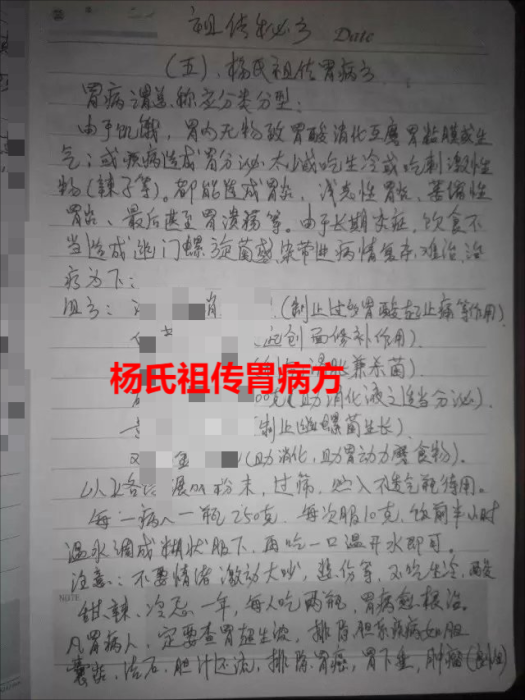 祖传秘方 Date
(五)、杨氏祖传胃病方
胃病谓总称应分类分型:
由于饥饿,胃内无物致胃酸消化互磨胃黏膜或生
气;或疾病造成胃分泌太少或吃生冷或吃刺激性
物(辣子等)。都能造成胃炎,浅表性胃炎、萎缩性
胃炎、最后甚至胃溃疡等。由于长期炎症,饮食不
当造成幽门螺旋菌感染带进病情复杂,难治,治
疗为下:
组方: (制止过多胃酸起止痛等作用)
起创面修补作用).
兼杀菌)
杨氏祖传胃病方
00克(助消化液之适当分泌).
制止幽螺菌生长).
(助消化,助胃动力磨食物).
以上各 粉末,过筛,然入不透气瓶待用。
每一病人一瓶250克.每次服10克,饭前半小时
温水调成糊状服下,再吃一口温开水即可。
注意:不要情绪激动大吵,悲伤等,不吃生冷,酸
甜、辣、冷忌一年,每人吃两瓶,胃病愈根治。
NOTE
凡胃病人一定要查胃超生波,排除胆系疾病如胆
囊炎,结石.胆汁还流,排除胃癌,胃下垂,肿瘤